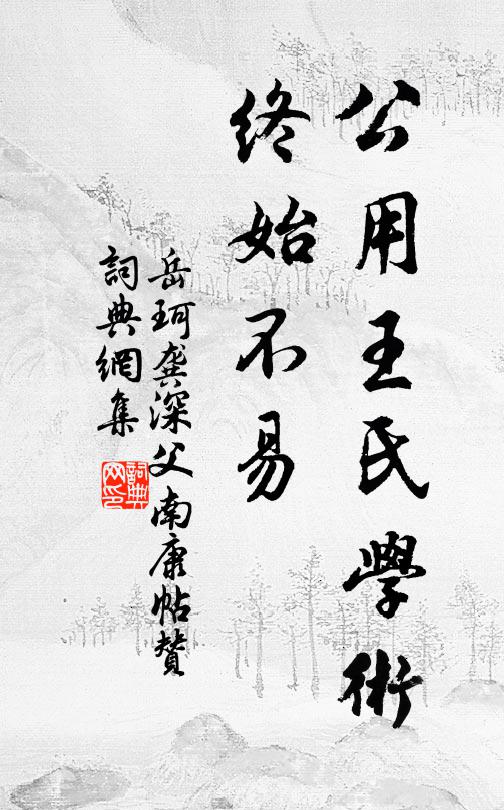 公用王氏學術
終始不易
岳珂龔深父南康帖贊
詞典網集
詞典
網印